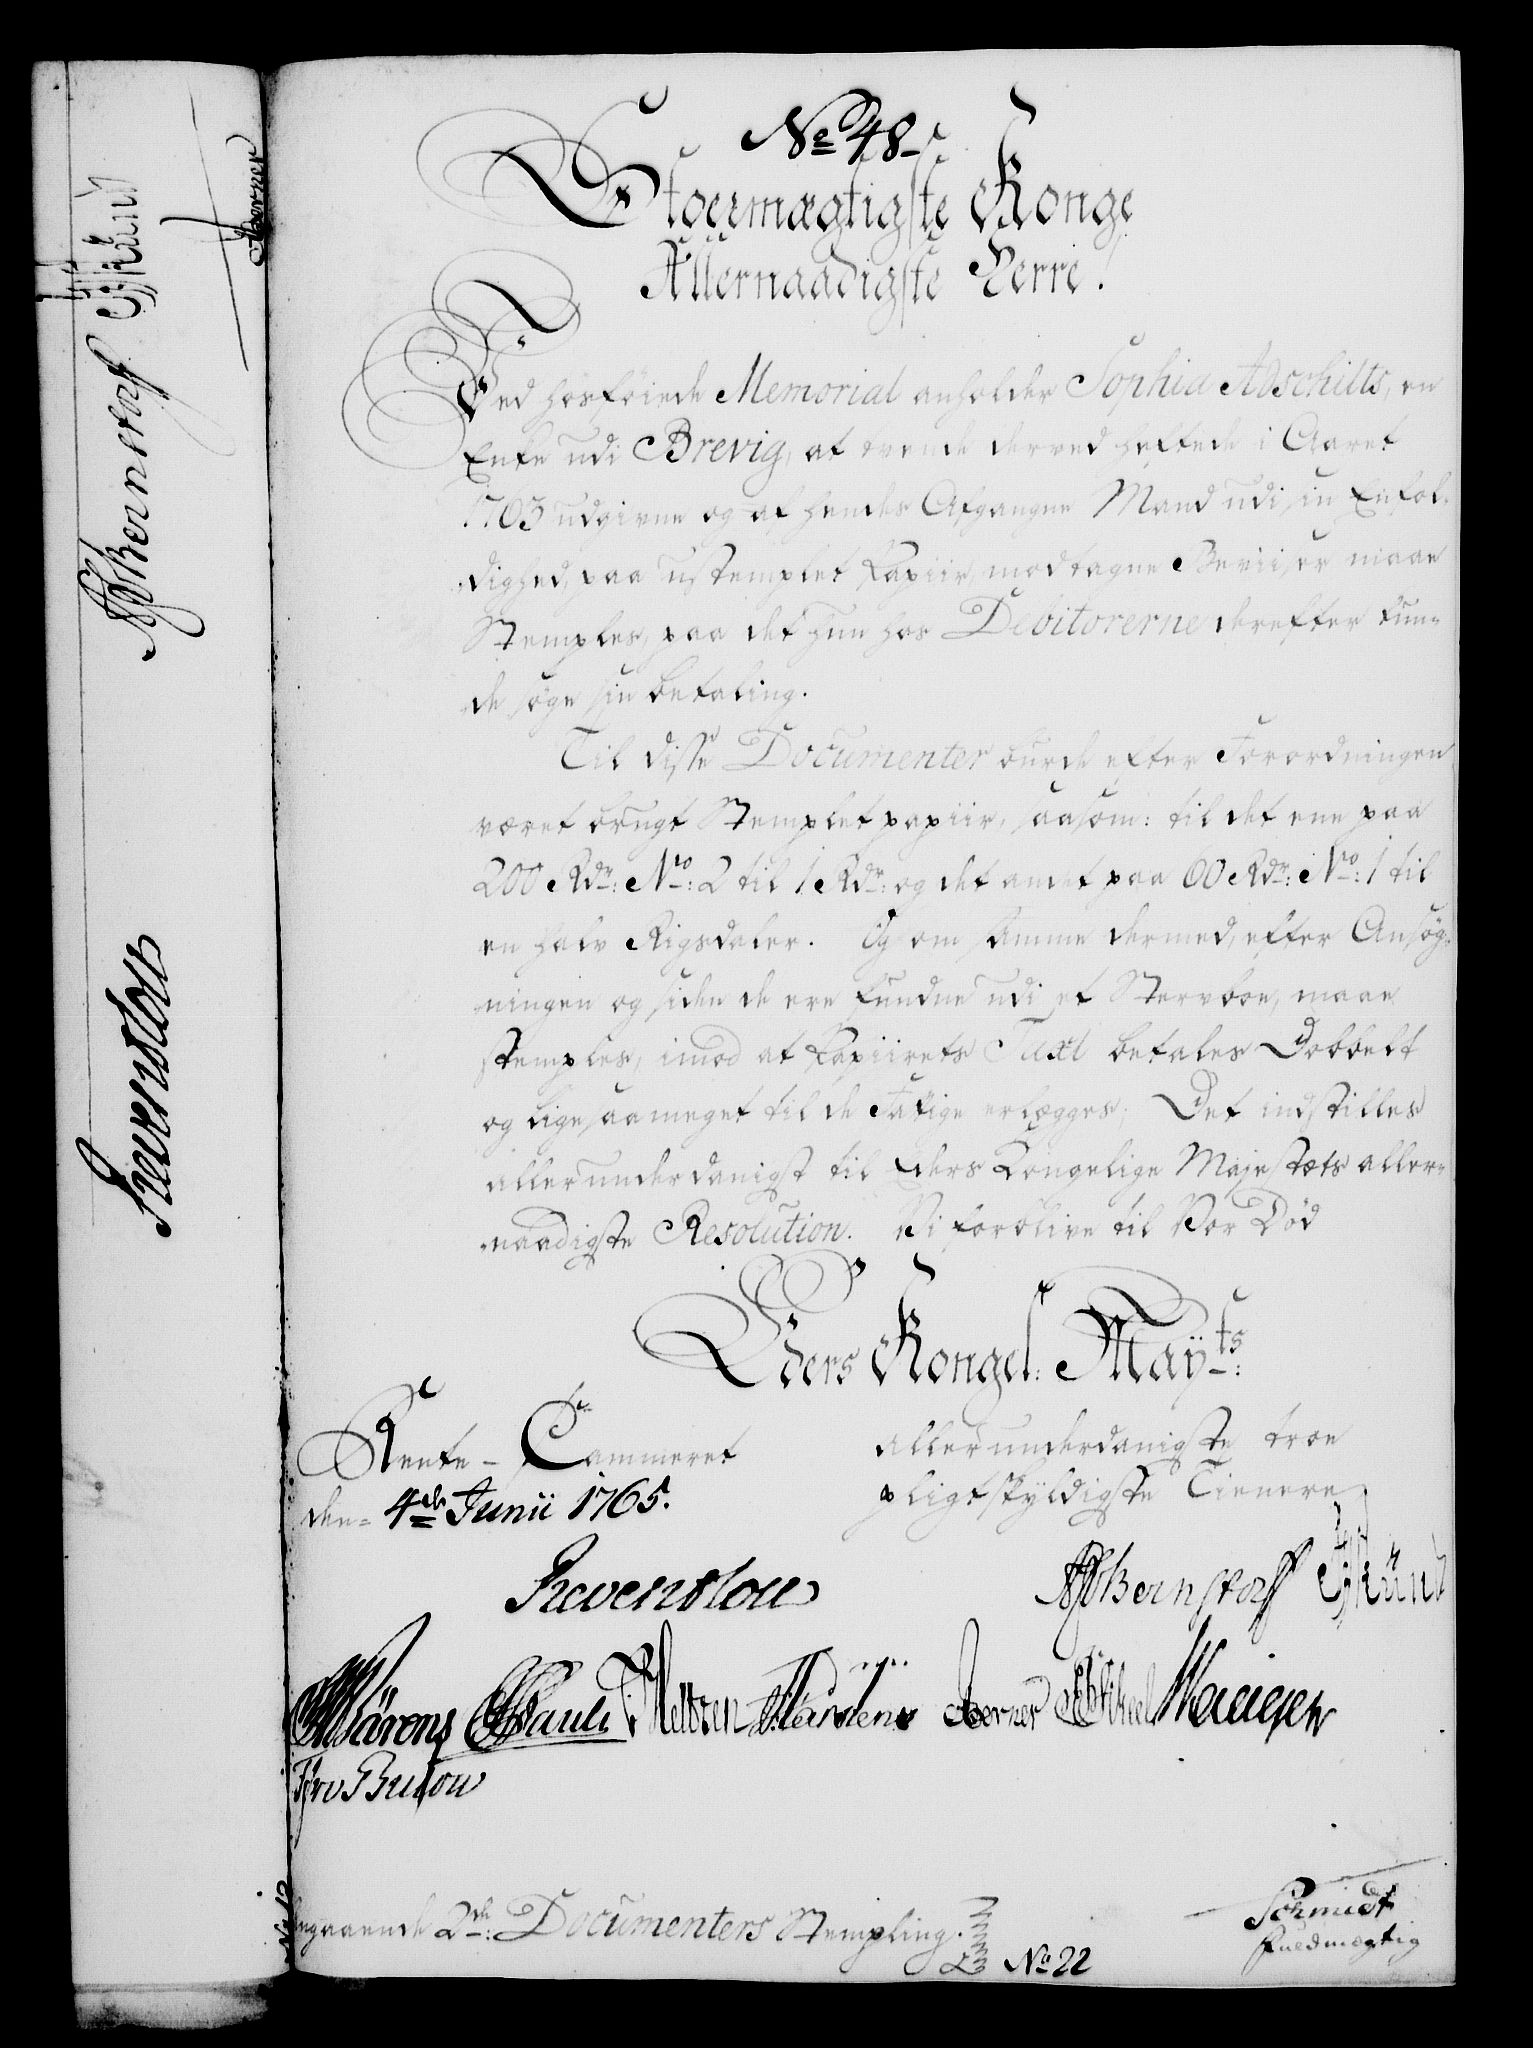 No 48
Stoermægtigste Konge
Allernaadigste Herre!
Ved hosføiede Memorial anholder Sophia Adschilts, en
Enke udi Brevig, at tvende derved heftede i Aaret
1763 udgivne og af hendes Afgangne Mand udi sin Enfol-
dighed, paa ustemplet Papiir, modtagne Beviiser maae
Stemples, paa det hun hos Debitorerne derefter kun-
de søge sin betaling.
Til disse Documenter burde efter Forordningen
været brugt Stemplet papiir, saasom: til det ene paa
200 Rdr: No: 2 til 1 Rdr: og det andet paa 60 Rdr: No: 1 til
en halv Rigsdaler. Og om samme dermed, efter Ansøg-
ningen og siden de ere fundne udi et Sterboe, maae
stemples, imod at Papiirets Taxt betales Dobbelt
og ligesaameget til de Fattige erlægges; Det indstilles
allerunderdanigst til Eders Kongelige Majestæts aller-
naadigste Resolution. Vi forblive til Vor Død
Eders Kongel: Mayts:
allerunderdanigste troe
pligtskyldigste Tienere
Rente-Cammeret
den 4de Junii 1765.
Reventlou
Bernstorff
Pauli
Berner
Pro Bülow
Angaaende 2de: Documenters Stempling.
No 22
Schmidt
Fuldmægtig
Bernstorff
Berner
Reventlou